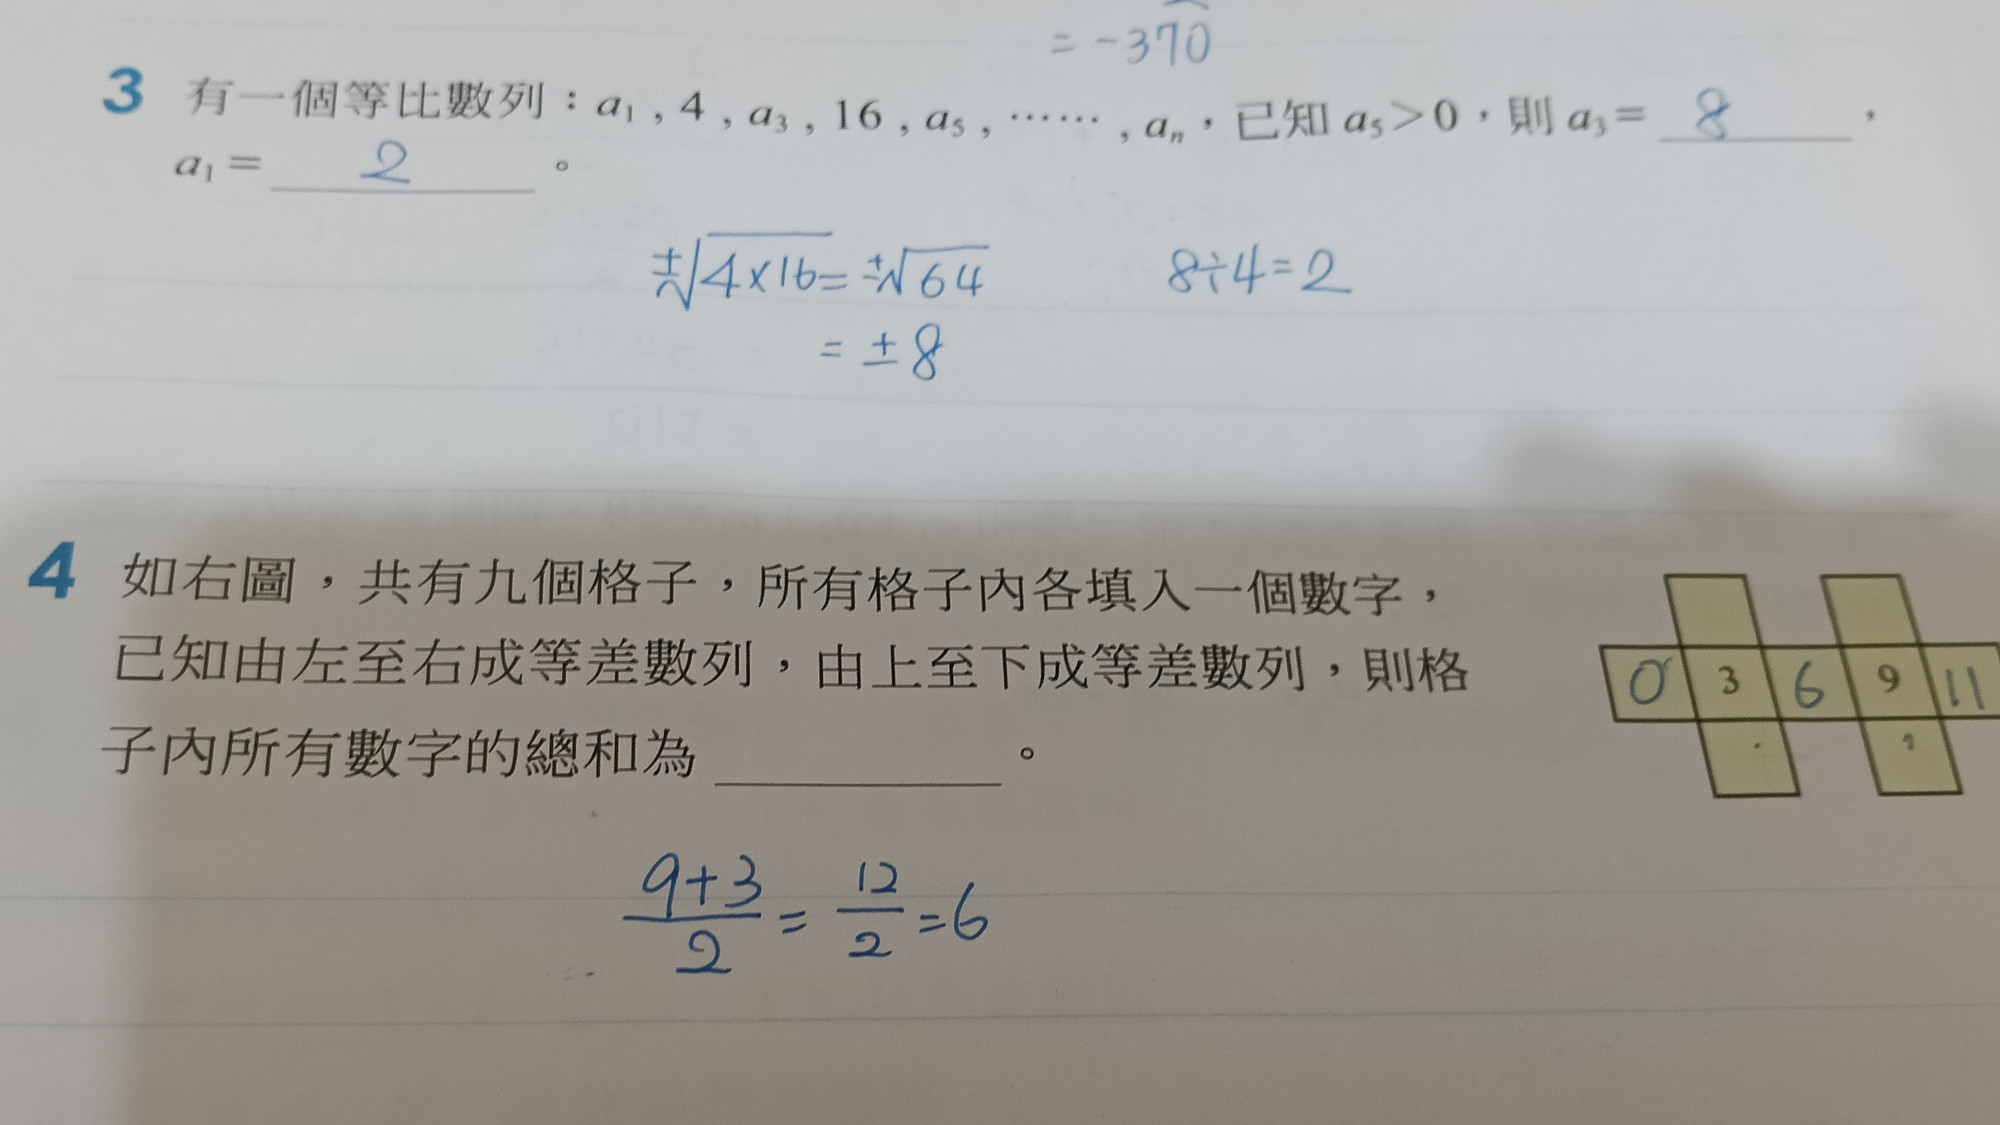 = -370
3 有一個等比數列：a₁ , 4 , a₃ , 16 , a₅ , …… , aₙ，已知 a₅＞0，則 a₃＝ 8 ，
a₁＝ 2 。
±√4×16 = ±√64 8÷4=2
= ±8
4 如右圖，共有九個格子，所有格子內各填入一個數字，
已知由左至右成等差數列，由上至下成等差數列，則格
子內所有數字的總和為 。
0 3 6 9 11
9+3/2 = 12/2 = 6